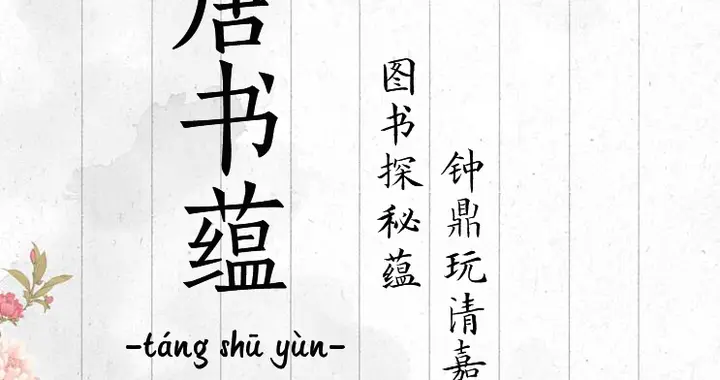 唐书蕴
-táng shū yùn-
图书探秘蕴
钟鼎玩清嘉